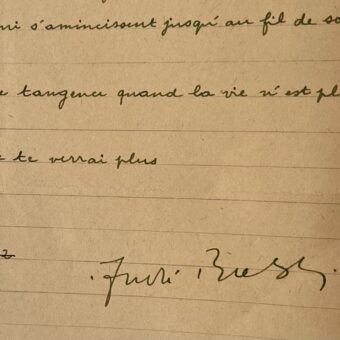 s'amincissent jusqu'au fil de so
tangence quand la vie n'est pl
te verrai plus
André Breton